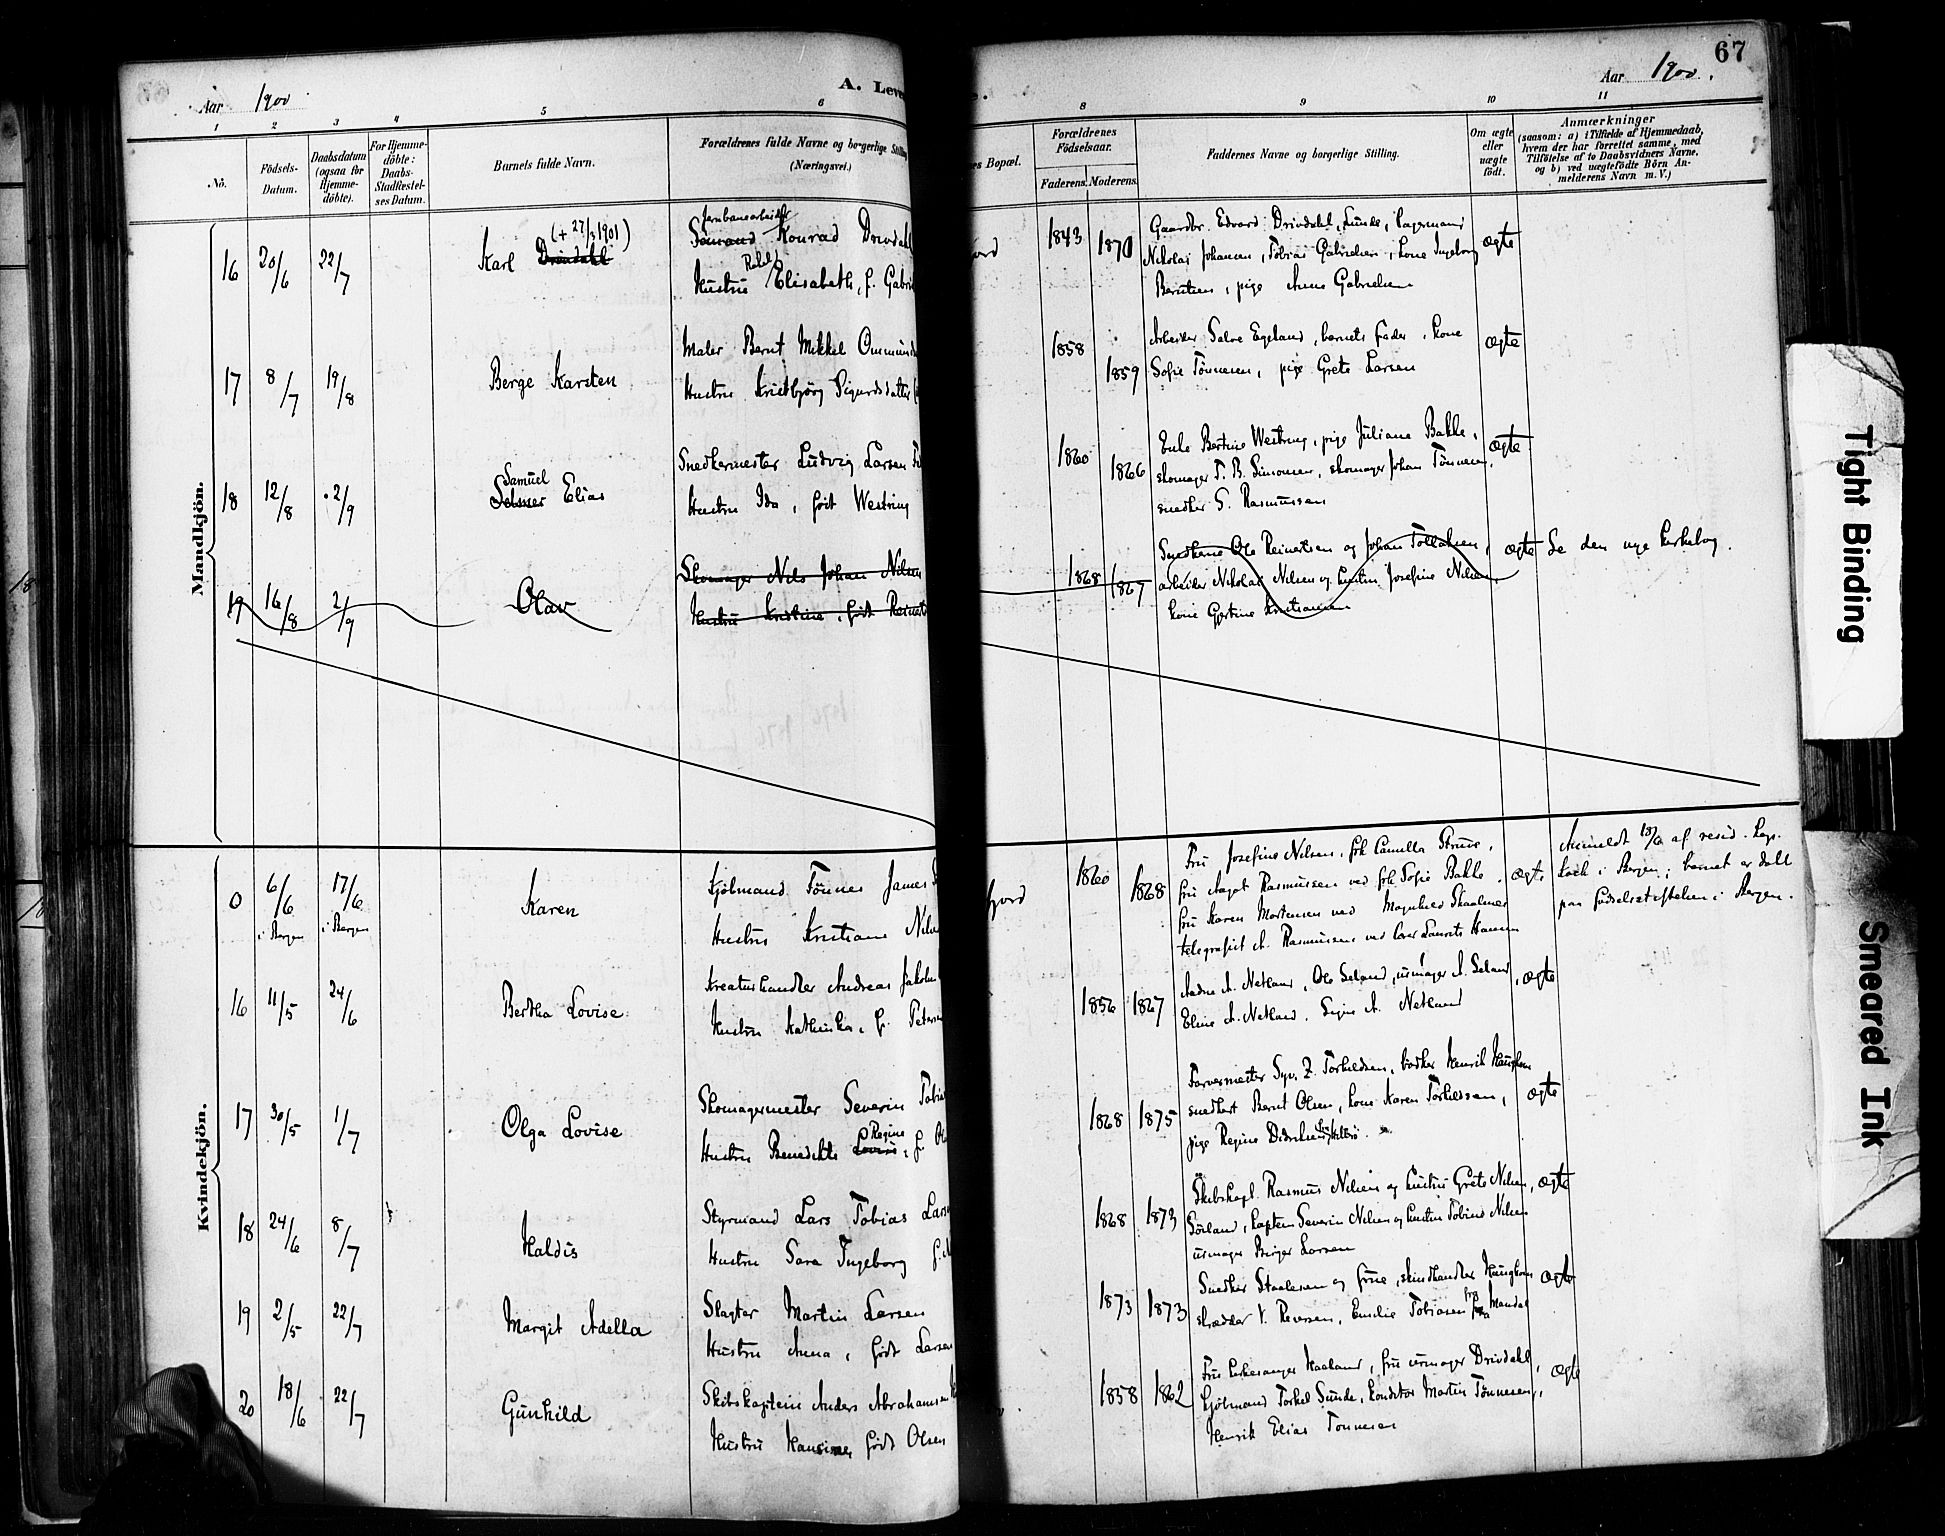 67
Aar 1900
A. Leve
Aar 1900.
1 2 3 4 5 6 8 9 10 11
No.
Fødsels-
Datum.
Daabsdatum
(ogsaa for
Hjemme-
døbte).
For Hjemme-
døbte:
Daabs-
Stadfæstel-
ses Datum.
Barnets fulde Navn.
Forældrenes fulde Navne og borgerlige Stilling
(Næringsvei.)
es Bopæl.
Forældrenes
Fødselsaar.
Faderens. Moderens.
Faddernes Navne og borgerlige Stilling.
Om ægte
eller
uægte
født.
Anmærkninger
(saasom: a) i Tilfælde af Hjemmedaab,
hvem der har forrettet samme, med
Tilføielse af to Daabsvidners Navne,
og b) ved uægtefødte Børn An-
melderens Navn m. V.)
Mandkjön.
16 20/6 22/7
(+ 27/3 1901)
Karl Drivdahl
Jernbanearbeider
Sømand Konrad Drivdahl
Rakel
Hustru Elisabeth, f. Gabri
ord
1843 1870
Gaardbr. Edvard Drivdahl, Lunde, Lagermand
Nikolai Johansen, Tobias Gabrielsen, kone Ingeborg
Berntsen, pige Anne Gabrielsen
ægte
17 8/7 19/8
Berge Karsten
Maler Bernt Mikkel Ommunds
Hustru Kristbjörg Sigurdsdatter
1858 1859
Arbeider Salve Egeland, barnets fader, kone
Sofie Tönnesen, pige Grete Larsen
ægte
18 12/8 2/9
Samuel
Elias
Snedkermester Ludvig Larsen
Hustru Ida, født Westring
1860 1866
Enke Bertine Westring, pige Juliane Bakke,
skomager T. B. Simonsen, skomager Johan Tönnesen,
snedker S. Rasmussen
ægte
19 16/8 2/9
Olav
Skomager Nels Johan Nilsen
Hustru Kristine, født Reinerts
1868 1867
Snedkerne Ole Reinertsen og Johan Tollaksen,
arbeider Nikolai Nilsen og hustru Josefine Nilsen
kone Gjertine Kristiansen
ægte
Se den nye kirkebog.
Kvindekjön.
0 6/6 17/6
i Bergen i Bergen
Karen
Kjölmand Tönnes James
Hustru Kristiane Nils
fjord
1860 1868
Fru Josefine Nilsen, frk Camilla Struve,
fru Aagot Rasmussen ved frk Sofie Bakke
fru Karen Mortensen ved Magnhild Skaalnes
telegrafist A. Rasmussen ved Laurits Hansen
ægte
Anmeldt 18/6 af resid. kap.
Koch i Bergen; barnet er døbt
paa fødselsstiftelsen i Bergen.
16 11/5 24/6
Bertha Lovise
Kreaturhandler Andreas Jakobs
Hustru Kathinka, f. Peters
1856 1867
Andrea A. Netland, Ole Seland, urmager A. Seland
Eline A. Netland, Signe A. Netland
ægte
17 30/5 1/7
Olga Lovise
Skomagermester Severin Tobia
Regine
Hustru Benedikte Lovise, f.
1868 1875
Farvermester Syv. Z. Torkildsen, bødker Henrik Haughom
snedker Bernt Olsen, kone Karen Torkildsen,
pige Regine Didriksen
ægte
18 24/6 8/7
Haldis
Styrmand Lars Tobias Lars
Hustru Sara Ingeborg f.
1868 1873
Skibskapt. Rasmus Nilsen og hustru Grete Nilsen,
Sörland, kaptein Severin Nilsen og hustru Tobine Nilsen
urmager Birger Larsen
ægte
19 2/5 22/7
Margit Adella
Slagter Martin Larsen
Hustru Anna, født Larsen
1873 1873
Snedker Staalesen og frue, skindhandler Haughom
skrædder V. Reiersen, Emilie Tobiasen fra Mandal
ægte
20 18/6 22/7
Gunhild
Skibskaptein Anders Abrahamsen
Hustru Hansine, født Olsen
1858 1862
Fru kirkesanger Haaland, fru urmager Drivdahl,
kjölmand Torkel Sunde, konditor Martin Tönnesen,
Henrik Elias Tonnesen
ægte
Tight Binding
Smeared Ink